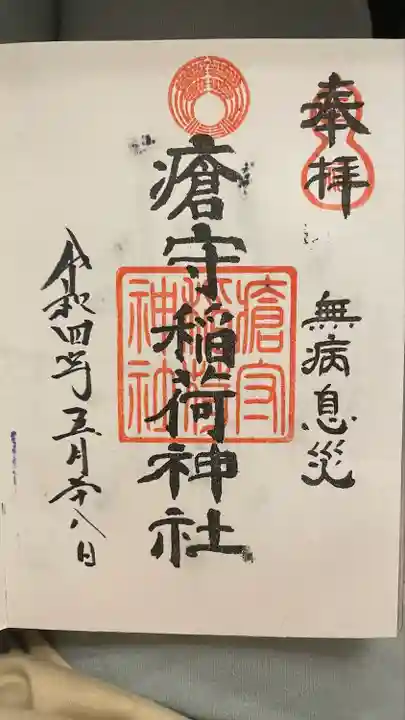 奉拝
無病息災
瘡守稲荷神社
瘡守稲荷神社
令和四年五月廿八日